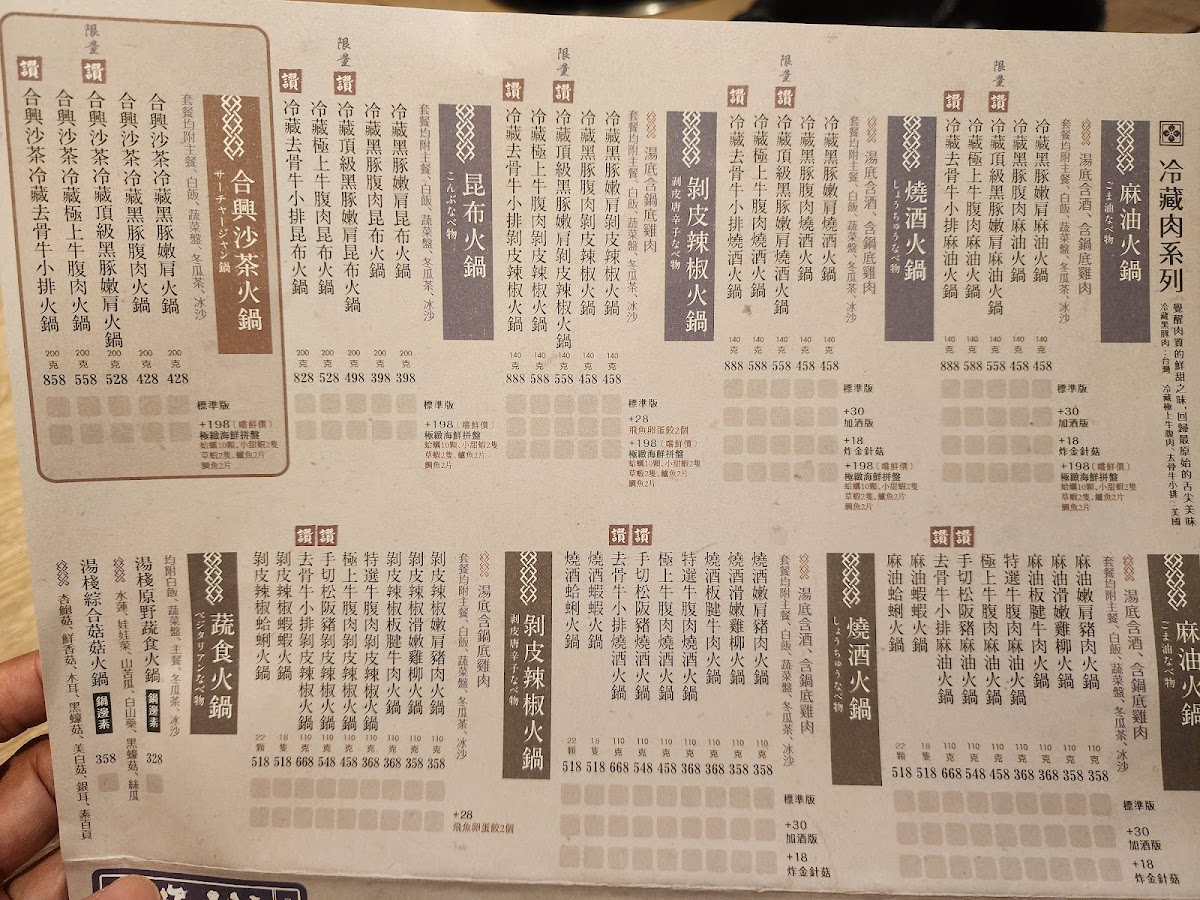 冷藏肉系列
覺醒肉質的鮮甜之味，回歸最原始的舌尖美味
冷藏黑豚肉：台灣 冷藏極上牛腹肉、去骨牛小排：美國
麻油火鍋
ごま油なべ物
湯底含酒、含鍋底雞肉
套餐均附主餐、白飯、蔬菜盤、冬瓜茶、冰沙
冷藏黑豚嫩肩麻油火鍋 140克 458
冷藏黑豚腹肉麻油火鍋 140克 458
限量 讚 冷藏頂級黑豚嫩肩麻油火鍋 140克 558
冷藏極上牛腹肉麻油火鍋 140克 588
讚 冷藏去骨牛小排麻油火鍋 140克 888
標準版
+30
加酒版
+18
炸金針菇
+198（嚐鮮價）
極緻海鮮拼盤
蛤蠣10顆、小甜蝦2隻
草蝦2隻、鱸魚2片
鯛魚2片
燒酒火鍋
しょうちゅうなべ物
湯底含酒、含鍋底雞肉
套餐均附主餐、白飯、蔬菜盤、冬瓜茶、冰沙
冷藏黑豚嫩肩燒酒火鍋 140克 458
冷藏黑豚腹肉燒酒火鍋 140克 458
限量 讚 冷藏頂級黑豚嫩肩燒酒火鍋 140克 558
冷藏極上牛腹肉燒酒火鍋 140克 588
讚 冷藏去骨牛小排燒酒火鍋 140克 888
標準版
+30
加酒版
+18
炸金針菇
+198（嚐鮮價）
極緻海鮮拼盤
蛤蠣10顆、小甜蝦2隻
草蝦2隻、鱸魚2片
鯛魚2片
剝皮辣椒火鍋
剥皮唐辛子なべ物
湯底含鍋底雞肉
套餐均附主餐、白飯、蔬菜盤、冬瓜茶、冰沙
冷藏黑豚嫩肩剝皮辣椒火鍋 140克 458
冷藏黑豚腹肉剝皮辣椒火鍋 140克 458
限量 讚 冷藏頂級黑豚嫩肩剝皮辣椒火鍋 140克 558
冷藏極上牛腹肉剝皮辣椒火鍋 140克 588
讚 冷藏去骨牛小排剝皮辣椒火鍋 140克 888
標準版
+28
飛魚卵蛋餃2個
+198（嚐鮮價）
極緻海鮮拼盤
蛤蠣10顆、小甜蝦2隻
草蝦2隻、鱸魚2片
鯛魚2片
昆布火鍋
こんぶなべ物
套餐均附主餐、白飯、蔬菜盤、冬瓜茶、冰沙
冷藏黑豚嫩肩昆布火鍋 200克 398
冷藏黑豚腹肉昆布火鍋 200克 398
限量 讚 冷藏頂級黑豚嫩肩昆布火鍋 200克 498
冷藏極上牛腹肉昆布火鍋 200克 528
讚 冷藏去骨牛小排昆布火鍋 200克 828
標準版
+198（嚐鮮價）
極緻海鮮拼盤
蛤蠣10顆、小甜蝦2隻
草蝦2隻、鱸魚2片
鯛魚2片
合興沙茶火鍋
サーチャージャン鍋
套餐均附主餐、白飯、蔬菜盤、冬瓜茶、冰沙
合興沙茶冷藏黑豚嫩肩火鍋 200克 428
合興沙茶冷藏黑豚腹肉火鍋 200克 428
限量 讚 合興沙茶冷藏頂級黑豚嫩肩火鍋 200克 528
合興沙茶冷藏極上牛腹肉火鍋 200克 558
讚 合興沙茶冷藏去骨牛小排火鍋 200克 858
標準版
+198（嚐鮮價）
極緻海鮮拼盤
蛤蠣10顆、小甜蝦2隻
草蝦2隻、鱸魚2片
鯛魚2片
麻油火鍋
ごま油なべ物
湯底含酒、含鍋底雞肉
套餐均附主餐、白飯、蔬菜盤、冬瓜茶、冰沙
麻油嫩肩豬肉火鍋 110克 358
麻油滑嫩雞柳火鍋 110克 358
麻油板腱牛肉火鍋 110克 368
特選牛腹肉麻油火鍋 110克 368
極上牛腹肉麻油火鍋 110克 458
讚 手切松阪豬麻油火鍋 110克 548
讚 去骨牛小排麻油火鍋 110克 668
麻油蝦蝦火鍋 18隻 518
麻油蛤蜊火鍋 22顆 518
標準版
+30
加酒版
+18
炸金針菇
燒酒火鍋
しょうちゅうなべ物
湯底含酒、含鍋底雞肉
套餐均附主餐、白飯、蔬菜盤、冬瓜茶、冰沙
燒酒嫩肩豬肉火鍋 110克 358
燒酒滑嫩雞柳火鍋 110克 358
燒酒板腱牛肉火鍋 110克 368
特選牛腹肉燒酒火鍋 110克 368
極上牛腹肉燒酒火鍋 110克 458
讚 手切松阪豬燒酒火鍋 110克 548
讚 去骨牛小排燒酒火鍋 110克 668
燒酒蝦蝦火鍋 18隻 518
燒酒蛤蜊火鍋 22顆 518
標準版
+30
加酒版
+18
炸金針菇
剝皮辣椒火鍋
剥皮唐辛子なべ物
湯底含鍋底雞肉
套餐均附主餐、白飯、蔬菜盤、冬瓜茶、冰沙
剝皮辣椒嫩肩豬肉火鍋 110克 358
剝皮辣椒滑嫩雞柳火鍋 110克 358
剝皮辣椒板腱牛肉火鍋 110克 368
特選牛腹肉剝皮辣椒火鍋 110克 368
極上牛腹肉剝皮辣椒火鍋 110克 458
讚 手切松阪豬剝皮辣椒火鍋 110克 548
讚 去骨牛小排剝皮辣椒火鍋 110克 668
剝皮辣椒蝦蝦火鍋 18隻 518
剝皮辣椒蛤蜊火鍋 22顆 518
+28
飛魚卵蛋餃2個
蔬食火鍋
ベジタリアンなべ物
均附白飯、蔬菜盤、主餐、冬瓜茶、冰沙
湯棧原野蔬食火鍋 鍋邊素 328
水蓮、娃娃菜、山苦瓜、白山藥、黑蠔菇、絲瓜
湯棧綜合菇菇火鍋 鍋邊素 358
杏鮑菇、鮮香菇、木耳、黑蠔菇、美白菇、銀耳、素白貝